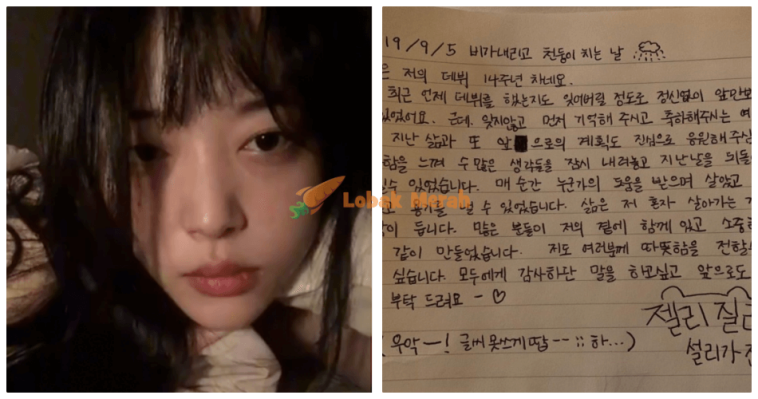 Lobak Merah
19/9/5 비가내리고 천둥이 치는 날
은 저의 데뷔 14주년 차네요.
최근 언제 데뷔를 했는지도 잊어버릴 정도로 정신없이 앞만보
있었어요. 근데. 잊지않고 먼저 기억해 주시고 축하해주시는 여
지난 삶과 또 앞으로의 계획도 진심으로 응원해 주심
함을 느껴 수많은 생각들을 잠시 내려놓고 지난날을 되돌
수 있었습니다. 매 순간 누군가의 도움을 받으며 살았고
용기를 낼 수 있었습니다. 삶은 저 혼자 살아가는 게
이 듭니다. 많은 분들이 저의 곁에 함께 있고 소중한
같이 만들었습니다. 저도 여러분께 따뜻함을 전할
싶습니다. 모두에게 감사하단 말을 하고싶고 앞으로도
부탁 드려요 ~ ♡
젤리
설리가
우악 ~! 글씨 못쓰게땀 -- ;; 하...)